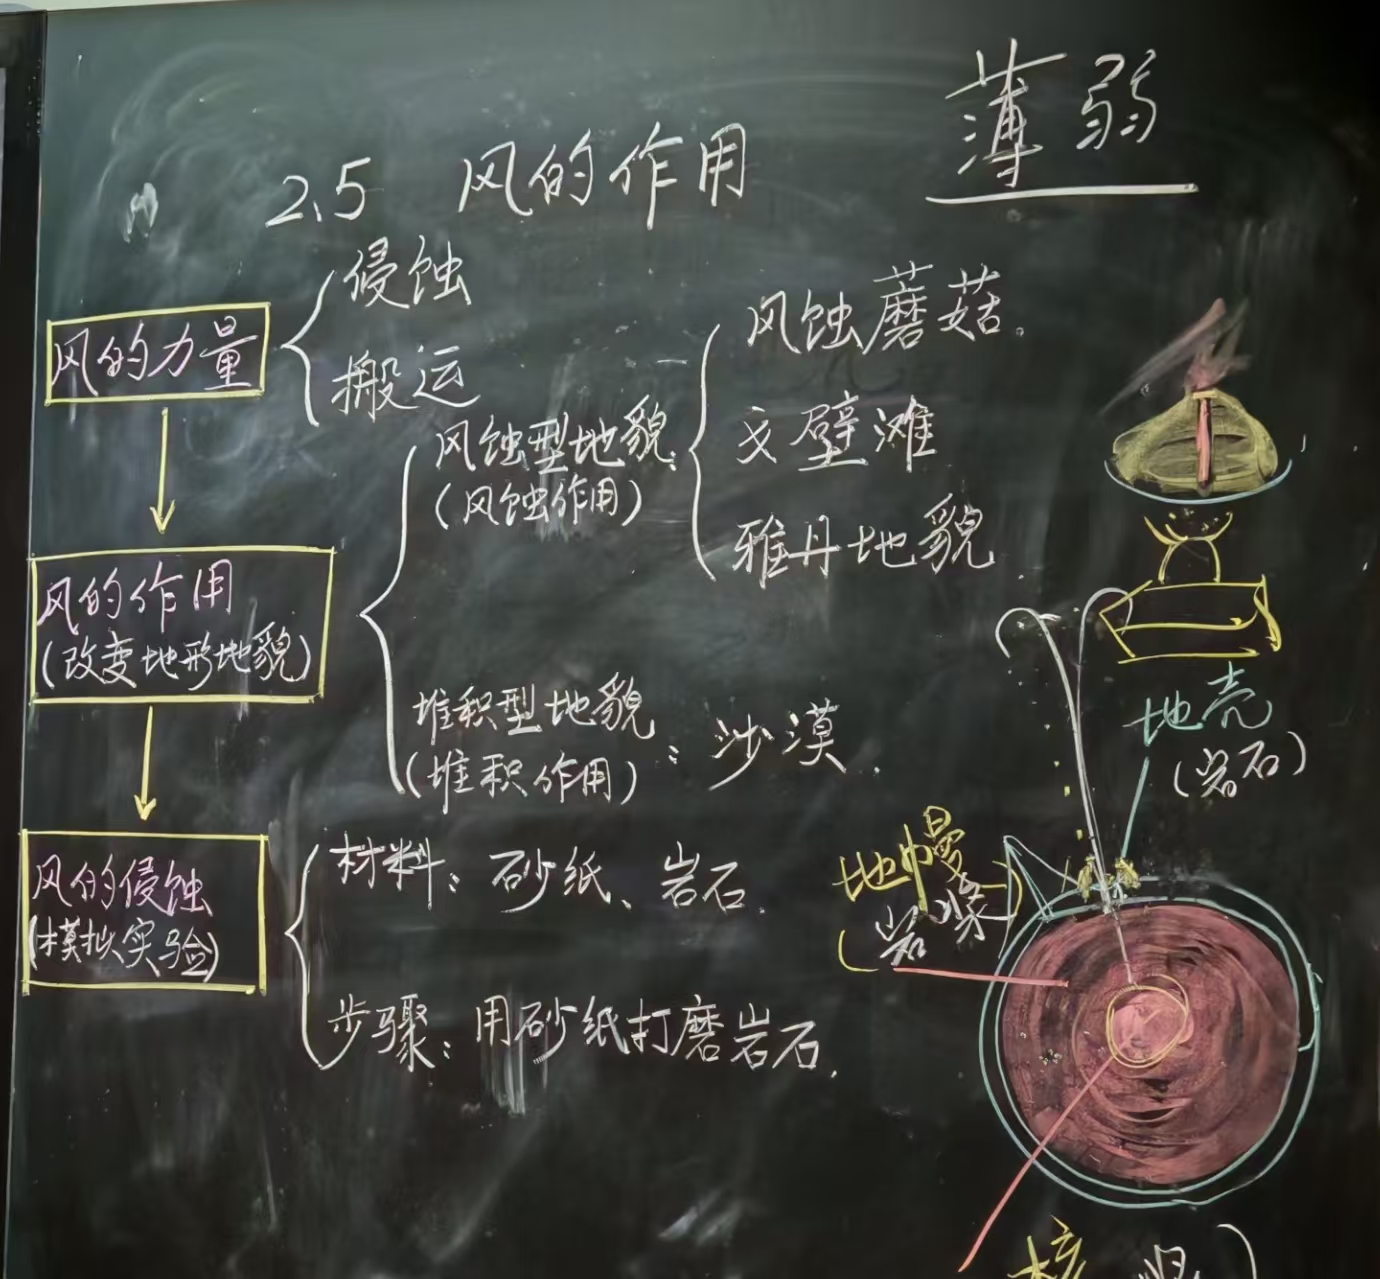 薄弱
2.5 风的作用
风的力量
侵蚀
搬运
风的作用
(改变地形地貌)
风蚀型地貌:
(风蚀作用)
风蚀蘑菇.
戈壁滩
雅丹地貌.
堆积型地貌
(堆积作用)
: 沙漠.
风的侵蚀
(模拟实验)
材料: 砂纸、岩石.
步骤: 用砂纸打磨岩石.
地壳
(岩石)
地幔
(岩浆)
核